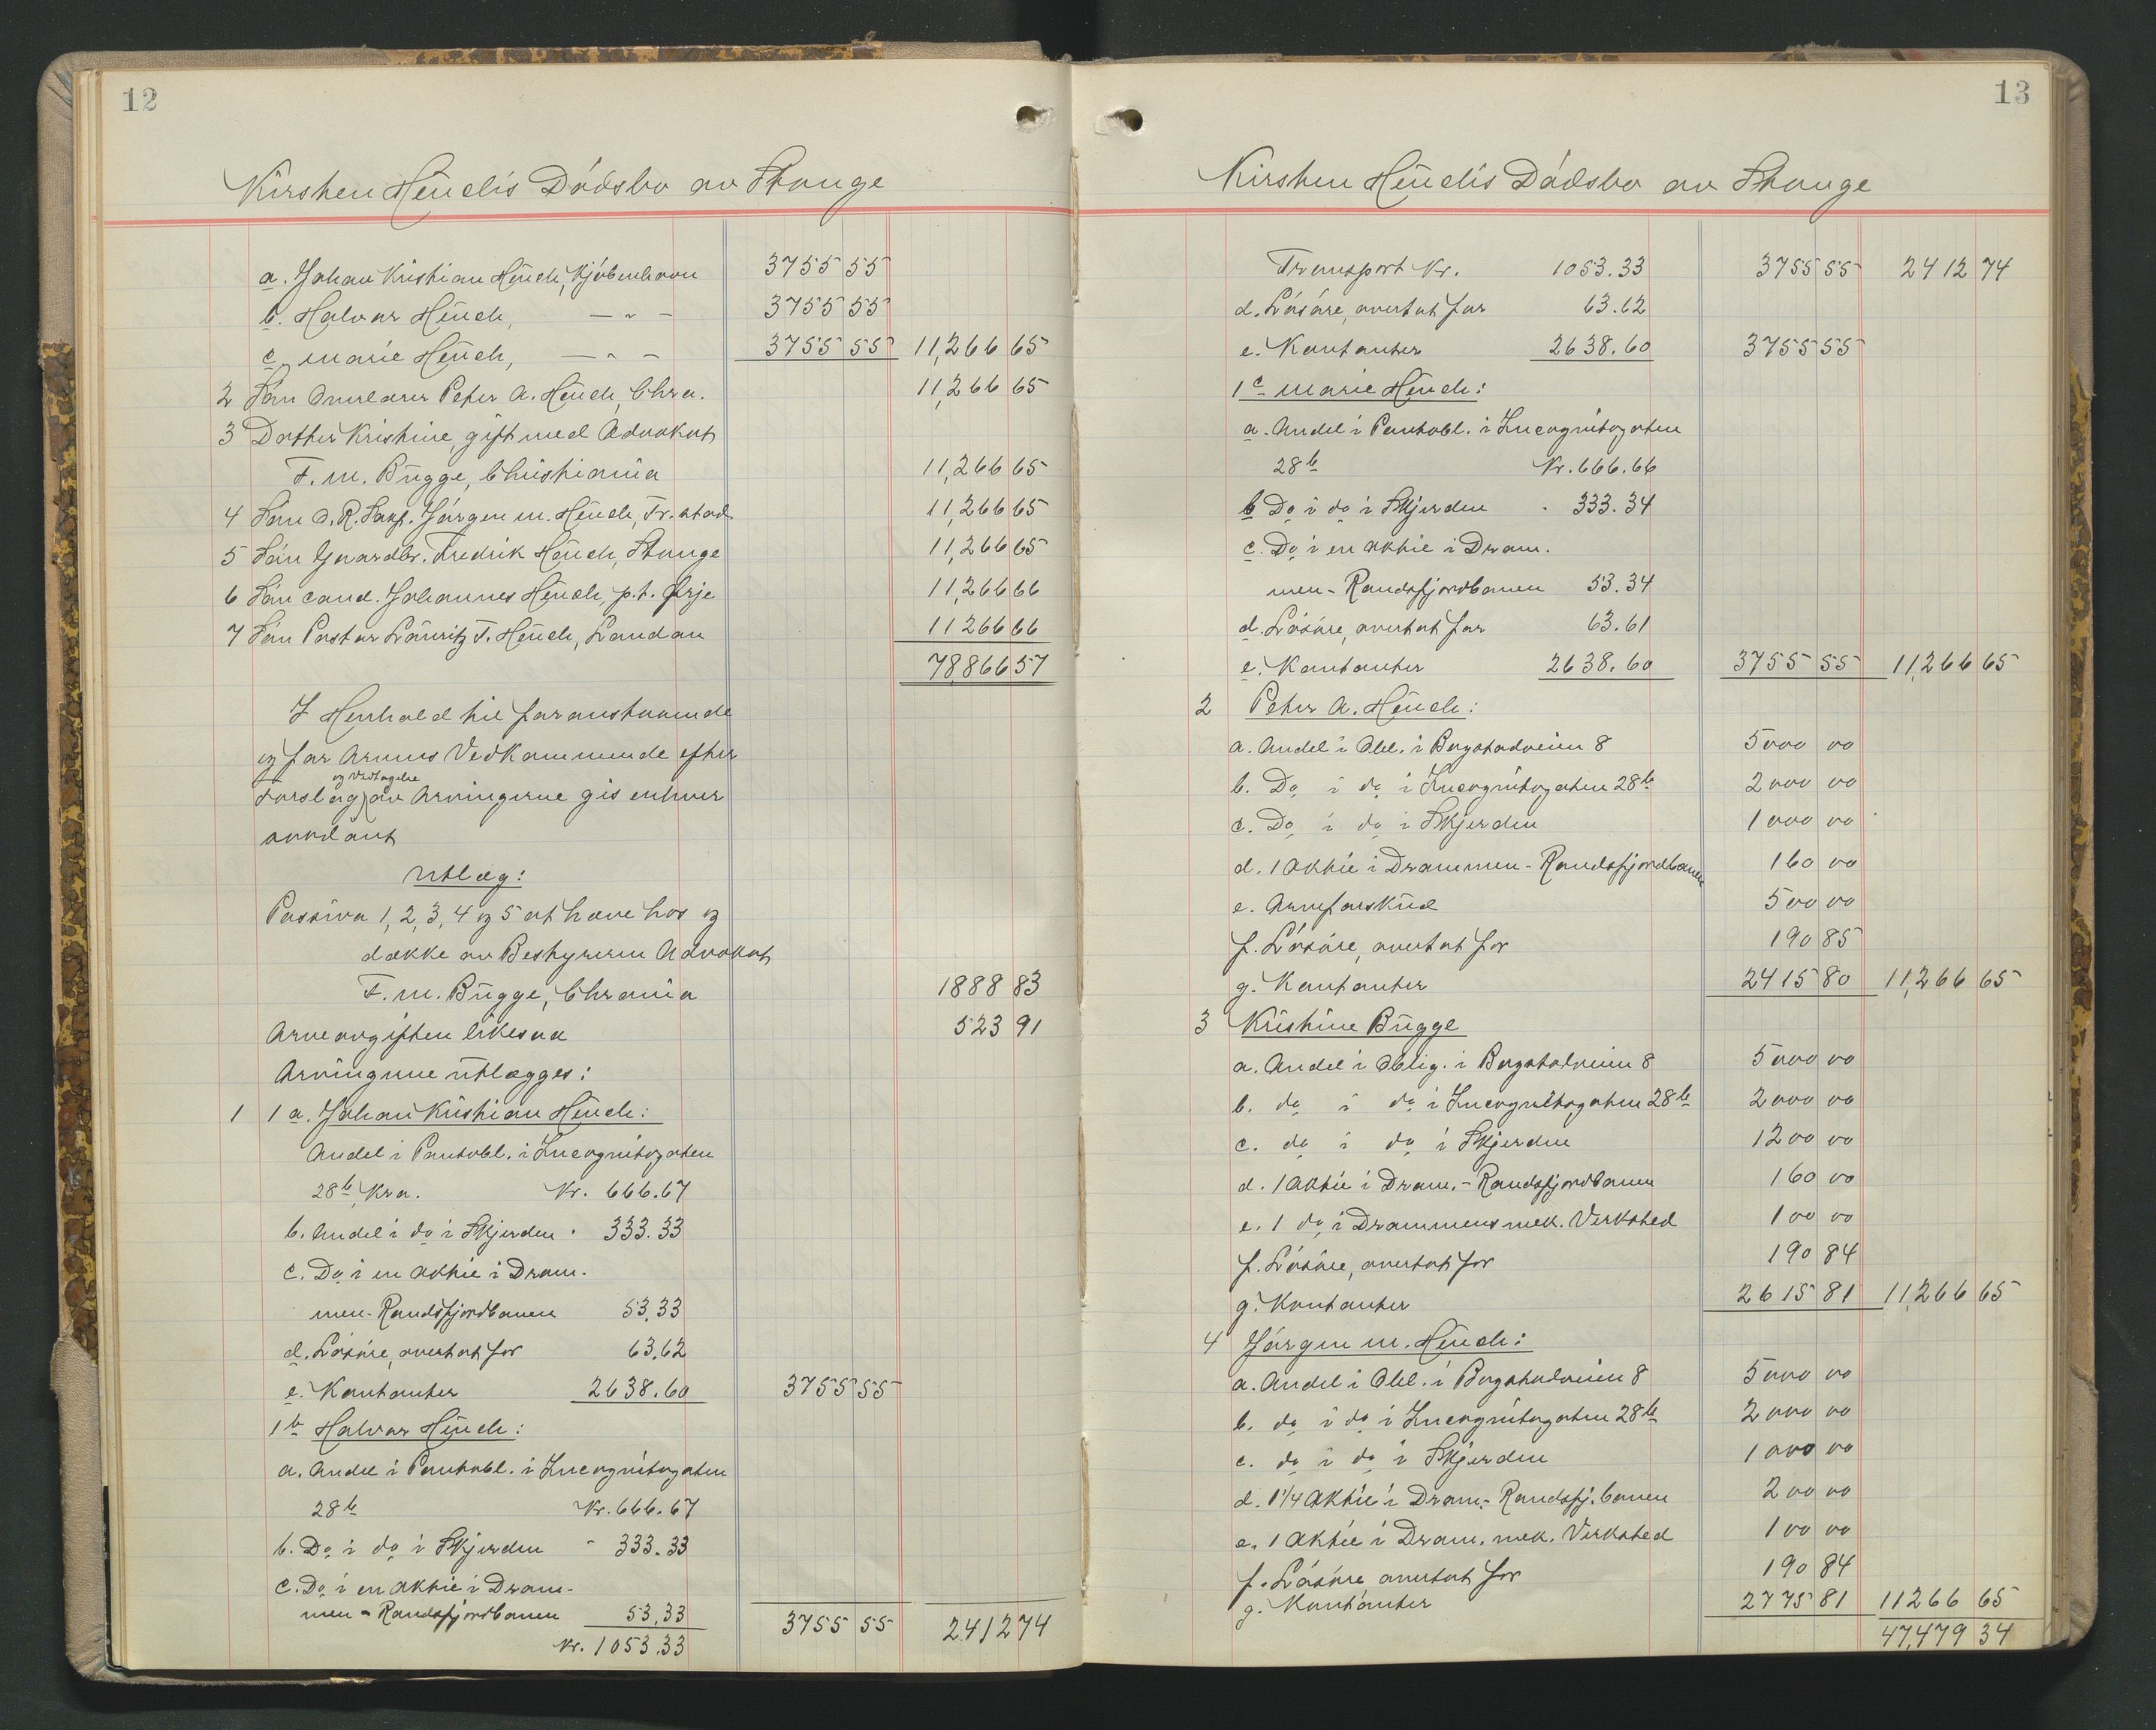 12
Kirsten Heuchs Dödsbo av Stange
a. Johan Kristian Heuch, Kjöbenhavn 3755 55
b. Halvor Heuch, — " — 3755 55
c. Marie Heuch, — " — 3755 55 11,266 65
2 Sön Overlærer Peter A. Heuch, Chra. 11,266 65
3 Datter Kristine, gift med Advokat
F. M. Bugge, Christiania 11,266 65
4 Sön O.R.Sakf. Jörgen M. Heuch, Fr.stad 11,266 65
5 Sön Gaardbr. Fredrik Heuch, Stange 11,266 65
6 Sön cand. Johannes Heuch, p.t. Ørje 11,266 66
7 Sön Pastor Lauritz F. Heuch, London 11266 66
78,866 57
I Henhold til foranstaaende
og for Arvens Vedkommende efter
og Vedtagelse
Forslag av Arvingerne gis enhver
saadant
Utlæg:
Passiva 1, 2, 3, 4 og 5 at hæve hos og
dække av Bestyreren Advokat
F. M. Bugge, Chrania 1888 83
Arveavgiften likesaa 523 91
Arvingerne utlægges:
1 1a. Johan Kristian Heuch:
Andel i Pantobl. i Incognitogaten
28b, Kra. Kr. 666.67
b. Andel i do i Skjerden " 333.33
c. Do i en Aktie i Dram-
men-Randsfjordbanen 53.33
d. Lösöre, overtat for 63.62
e. Kontanter 2638.60 3755 55
1b Halvor Heuch:
a. Andel i Pantobl. i Incognitogaten
28b Kr. 666.67
b. Do i do i Skjerden " 333.33
c. Do i en Aktie i Dram-
men-Randsfjordbanen 53.33
Kr. 1053.33 3755 55 2412 74
13
Kirsten Heuchs Dödsbo av Stange
Transport Kr. 1053.33 3755 55 2412 74
d. Lösöre, overtat for 63.62
e. Kontanter 2638.60 3755 55
1c Marie Heuch:
a. Andel i Pantobl. i Incognitogaten
28b Kr. 666.66
b Do i do i Skjerden " 333.34
c. Do i en Aktie i Dram.
men-Randsfjordbanen 53.34
d. Lösöre, overtat for 63.61
e. Kontanter 2638.60 3755 55 11,266 65
2 Peter A. Heuch:
a. Andel i Obl. i Bogstadveien 8 5000 00
b. Do i do i Incognitogaten 28b 2000 00
c. Do i do i Skjerden 1000 00
d. 1 Aktie i Drammen-Randsfjordbanen 160 00
e. Arveforskud 500 00
f. Lösöre, overtat for 190 85
g. Kontanter 2415 80 11,266 65
3 Kristine Bugge
a. Andel i Oblig. i Bogstadveien 8 5000 00
b. do i do i Incognitogaten 28b 2000 00
c. do i do i Skjerden 1200 00
d. 1 Aktie i Dram.-Randsfjordbanen 160 00
e. 1 do i Drammens mek. Verksted 100 00
f. Lösöre, overtat for 190 84
g. Kontanter 2615 81 11,266 65
4 Jörgen M. Heuch:
a. Andel i Obl. i Bogstadveien 8 5000 00
b. do i do i Incognitogaten 28b 2000 00
c. do i do i Skjerden 1000 00
d. 1 1/4 Aktie i Dram.-Randsfj.banen 200 00
e. 1 Aktie i Dram. mek. Verksted 100 00
f. Lösöre, overtat for 190 84
g. Kontanter 2775 81 11266 65
47,479 34